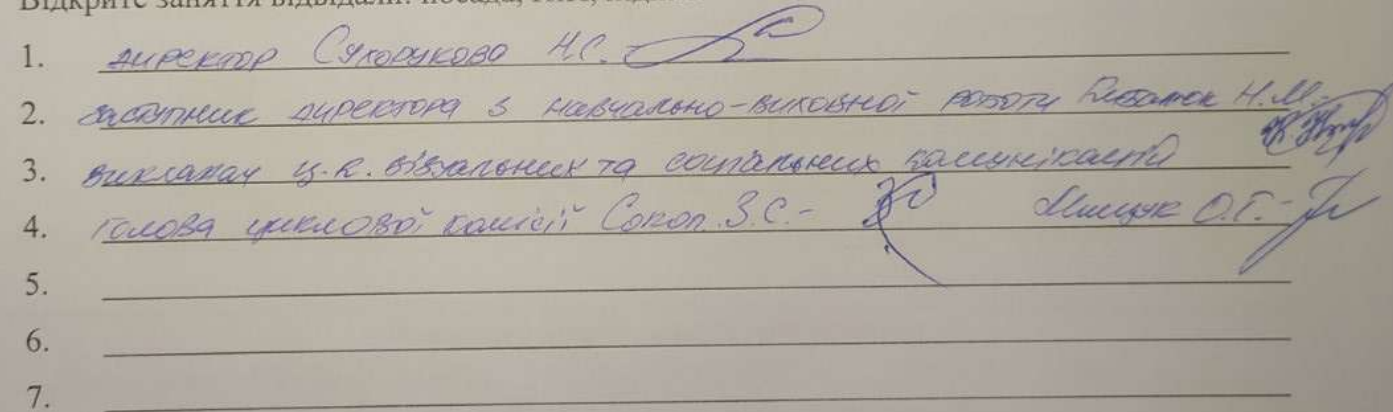 Відкрите заняття відвідали: посада,
1. директор Сухорукова Н.С.
2. заступник директора з навчально-виховної роботи Н.М.-
3. викладач ц.к. візуальних та соціальних комунікацій
4. голова циклової комісії Сокол З.С.- Мищук О.Г.-
5.
6.
7.